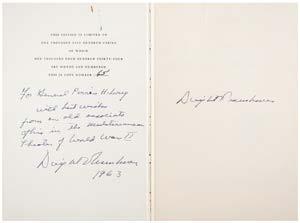 THIS EDITION IS LIMITED TO
ONE THOUSAND FIVE HUNDRED COPIES
OF WHICH
ONE THOUSAND FOUR HUNDRED FIFTY-FOUR
ARE SIGNED AND NUMBERED
THIS IS COPY NUMBER
For General
with best wishes
from an old associate
of his in the Mediterranean
Theater of World War II
Dwight Eisenhower
1963
Dwight Eisenhower